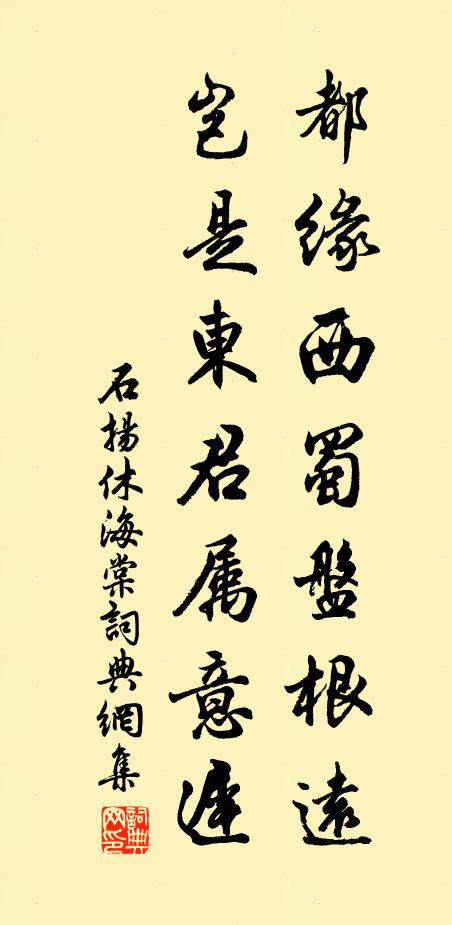 都缘西蜀盤根遠
豈是東君属意遲
石揚休海棠詞典網集
詞典網印